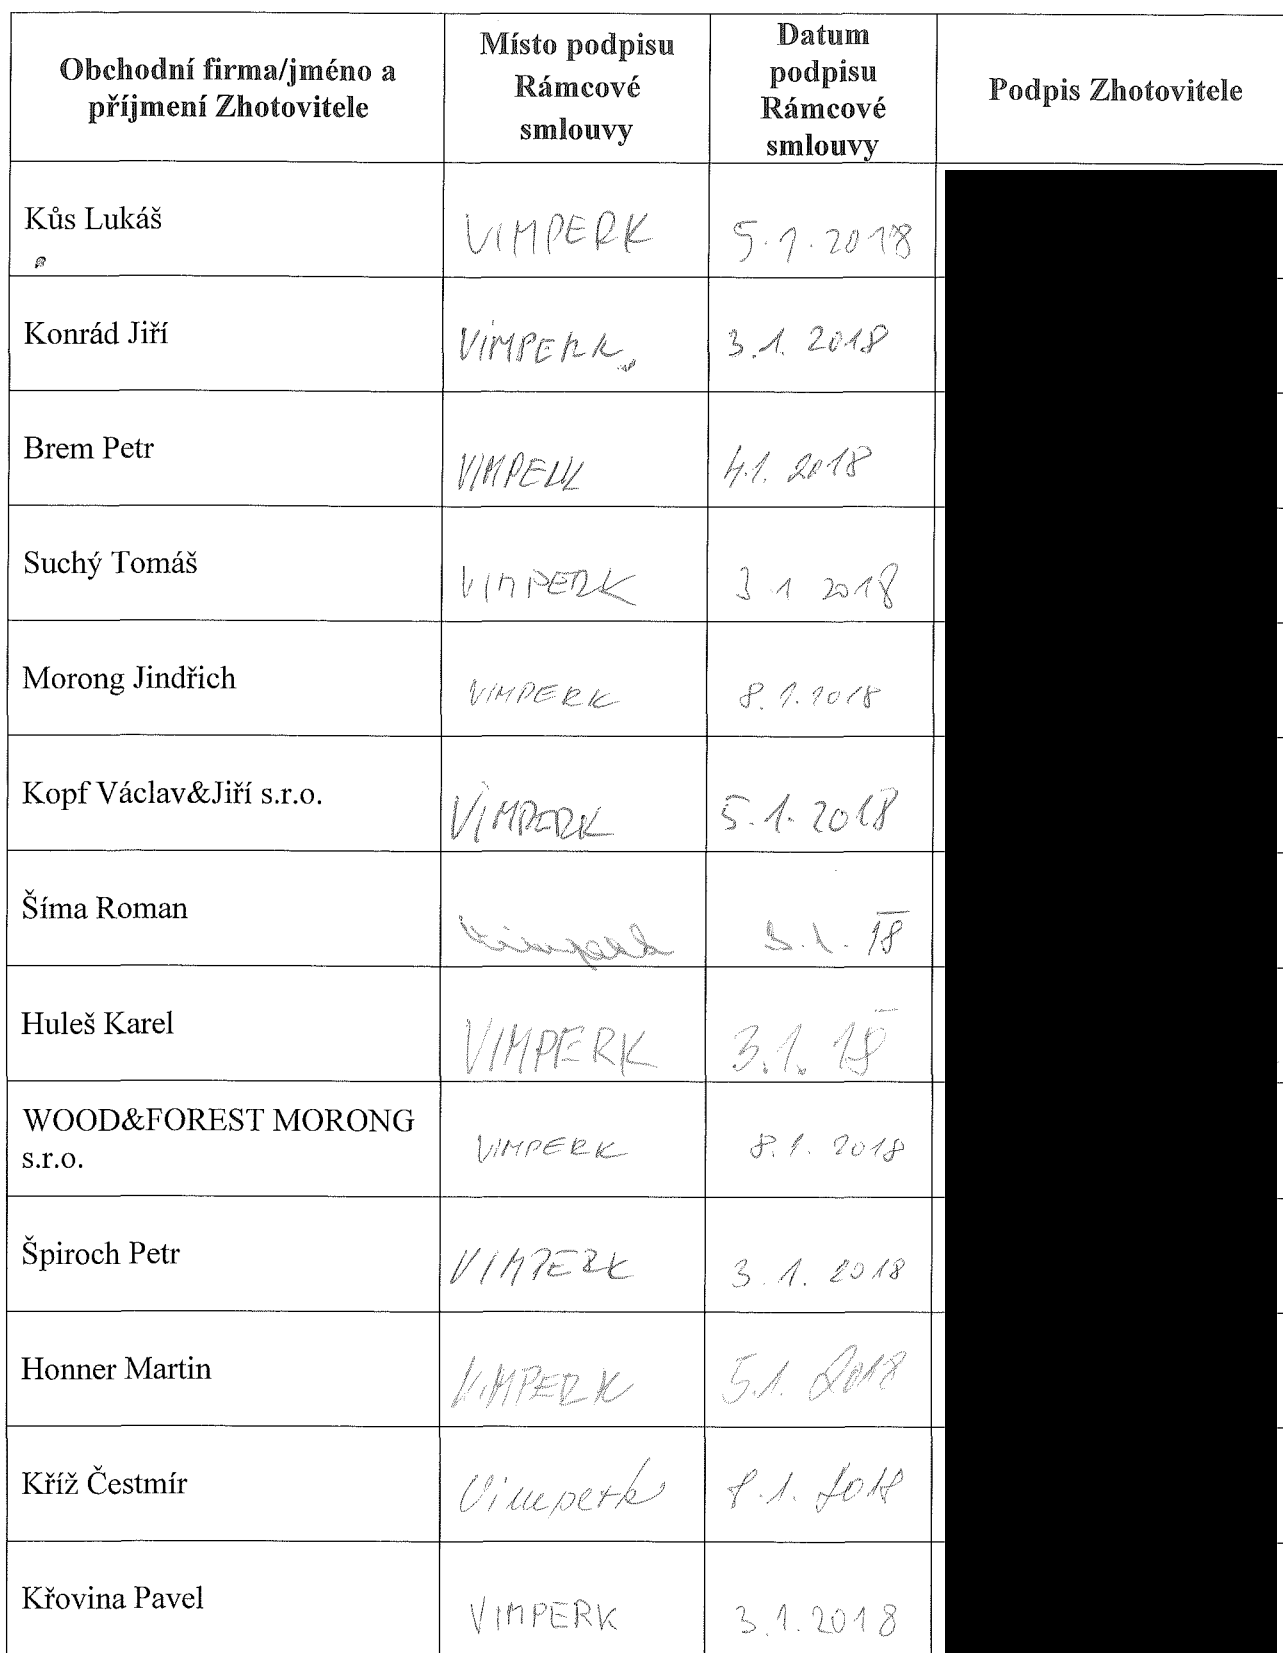 Obchodní firma/jméno a
příjmení Zhotovitele
Místo podpisu
Rámcové
smlouvy
Datum
podpisu
Rámcové
smlouvy
Podpis Zhotovitele
Kůs Lukáš
VIMPERK
5.1.2018
Konrád Jiří
VIMPERK
3.1. 2018
Brem Petr
VIMPERK
4.1. 2018
Suchý Tomáš
VIMPERK
3.1 2018
Morong Jindřich
VIMPERK
8.1.2018
Kopf Václav&Jiří s.r.o.
VIMPERK
5.1.2018
Šíma Roman
Vimperk
3.1. 18
Huleš Karel
VIMPERK
3.1. 18
WOOD&FOREST MORONG
s.r.o.
VIMPERK
8.1. 2018
Špiroch Petr
VIMPERK
3.1. 2018
Honner Martin
VIMPERK
5.1. 2018
Kříž Čestmír
Vimperk
8.1. 2018
Křovina Pavel
VIMPERK
3.1.2018